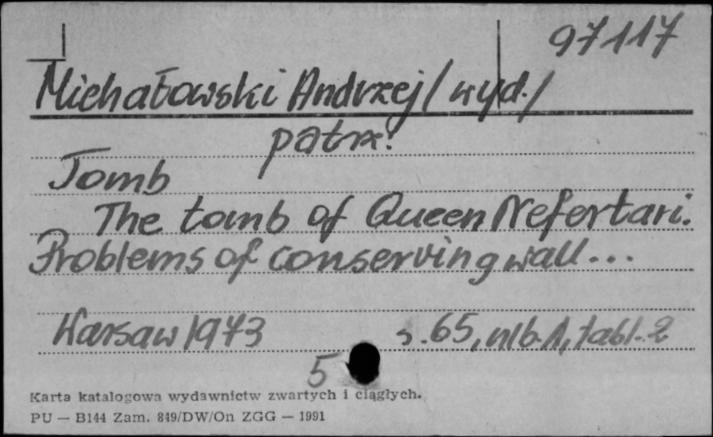 97117
Michałowski Andrzej /wyd./
patrz:
Tomb
The tomb of Queen Nefertari.
Problems of conserving wall...
Warsaw 1973 s. 65, nlb. 1, tabl. 2
5
Karta katalogowa wydawnictw zwartych i ciągłych.
PU — B144 Zam. 849/DW/On ZGG — 1991